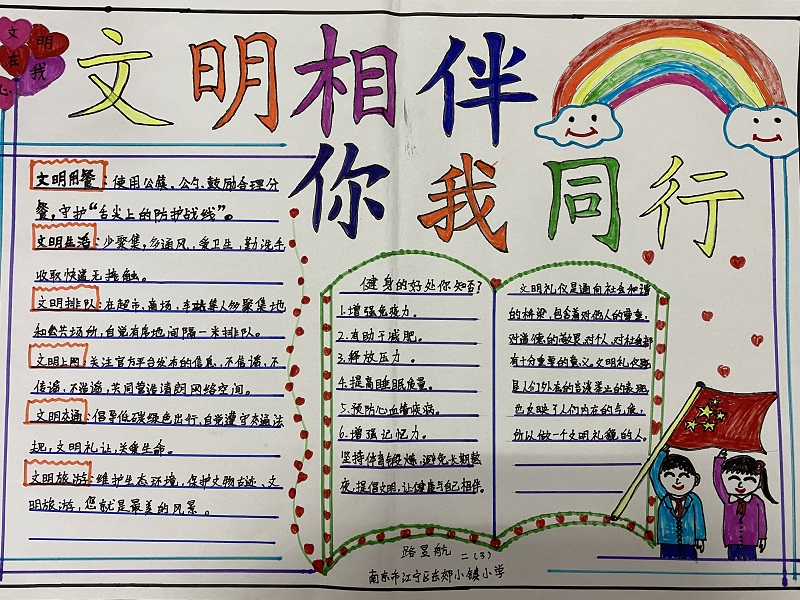 文明
在我
心
文明相伴
你我同行
文明用餐：使用公筷、公勺，鼓励合理分
餐，守护“舌尖上的防护战线”。
文明生活：少聚集，多通风，爱卫生，勤洗手
收取快递无接触。
文明排队：在超市、商场、车站等人多聚集地
和公共场所，自觉有序地间隔一米排队。
文明上网：关注官方平台发布的信息，不信谣，不
传谣，不造谣，共同营造清朗网络空间。
文明交通：倡导低碳绿色出行，自觉遵守交通法
规，文明礼让，关爱生命。
文明旅游：维护生态环境，保护文物古迹、文
明旅游，您就是最美的风景。
健身的好处你知否？
1.增强免疫力。
2.有助于减肥。
3.释放压力。
4.提高睡眠质量。
5.预防心血管疾病。
6.增强记忆力。
坚持体育锻炼，避免长期熬
夜，提倡文明，让健康与自己相伴。
文明礼仪是通向社会和谐
的桥梁，包含着对他人的尊重，
对道德的敬畏，对个人，对社会都
有十分重要的意义。文明礼仪既
是人们外在的言谈举止的表现，
也反映了人们内在的点，
所以做一个文明礼貌的人。
路昱航 二（3）
南京市江宁区东郊小镇小学